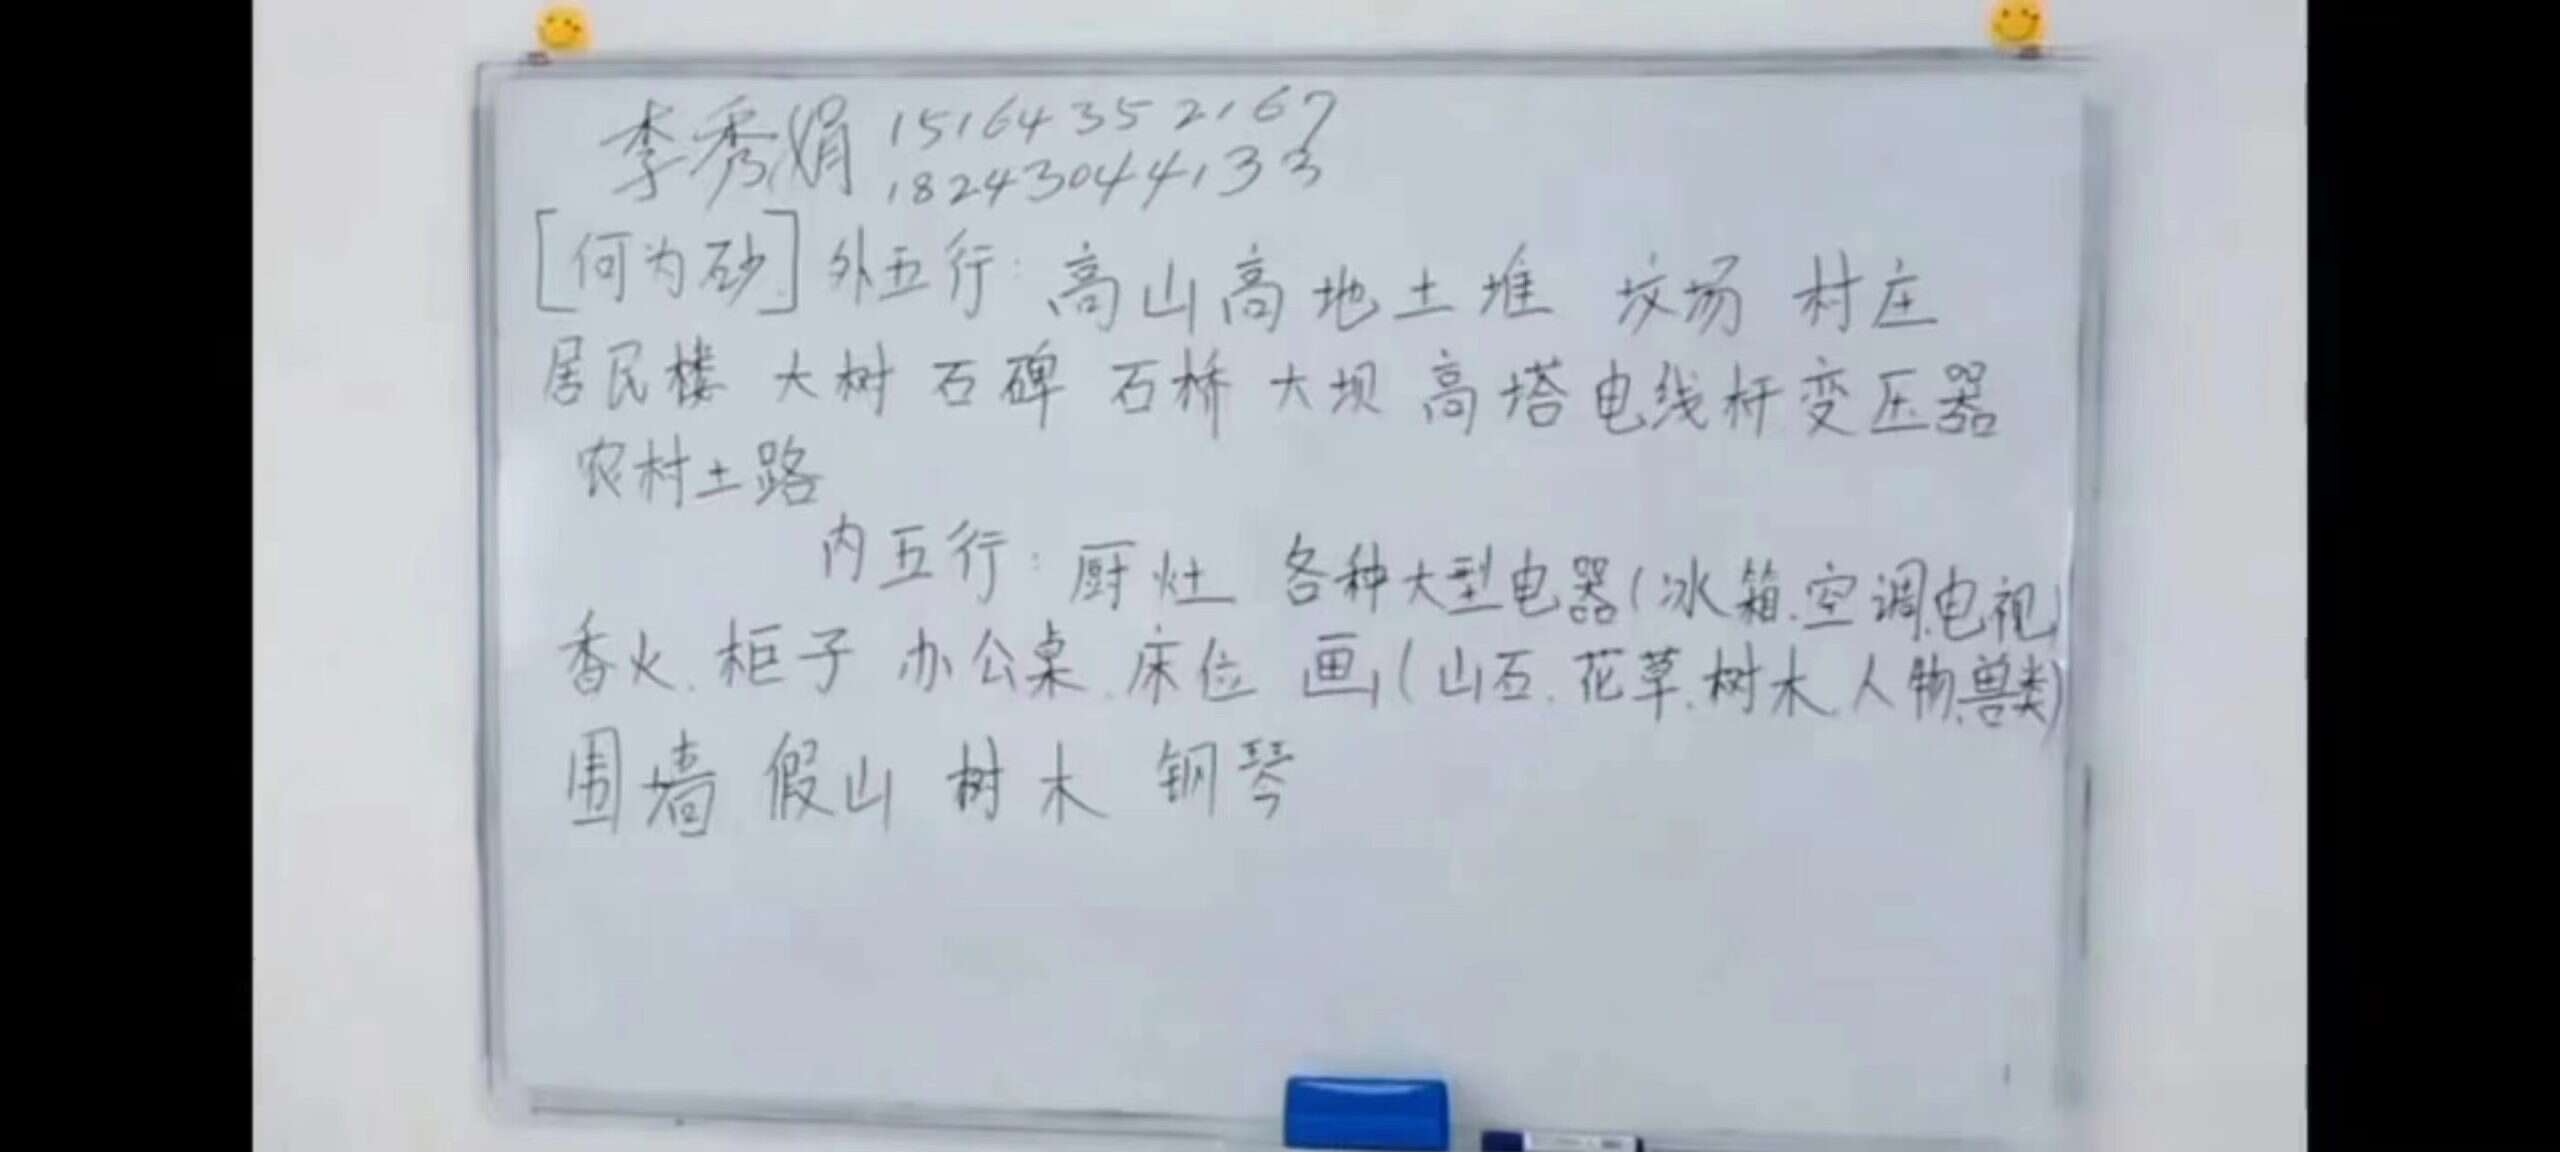 李秀娟 15164352167
18243044133
[何为砂] 外五行: 高山高地土堆 坟场 村庄
居民楼 大树 石碑 石桥 大坝 高塔电线杆变压器
农村土路
内五行: 厨灶 各种大型电器(冰箱.空调.电视)
香火.柜子 办公桌.床位 画(山石.花草.树木.人物.兽类)
围墙 假山 树木 钢琴